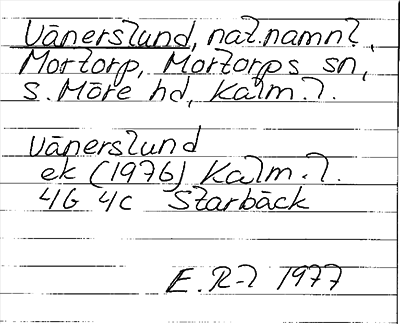 Vänerslund, nat.namn?,
Mortorp, Mortorps sn,
S. Möre hd, Kalm. l.
Vänerslund
ek (1976) Kalm. l.
4G 4c Starbäck
E. R-l 1977